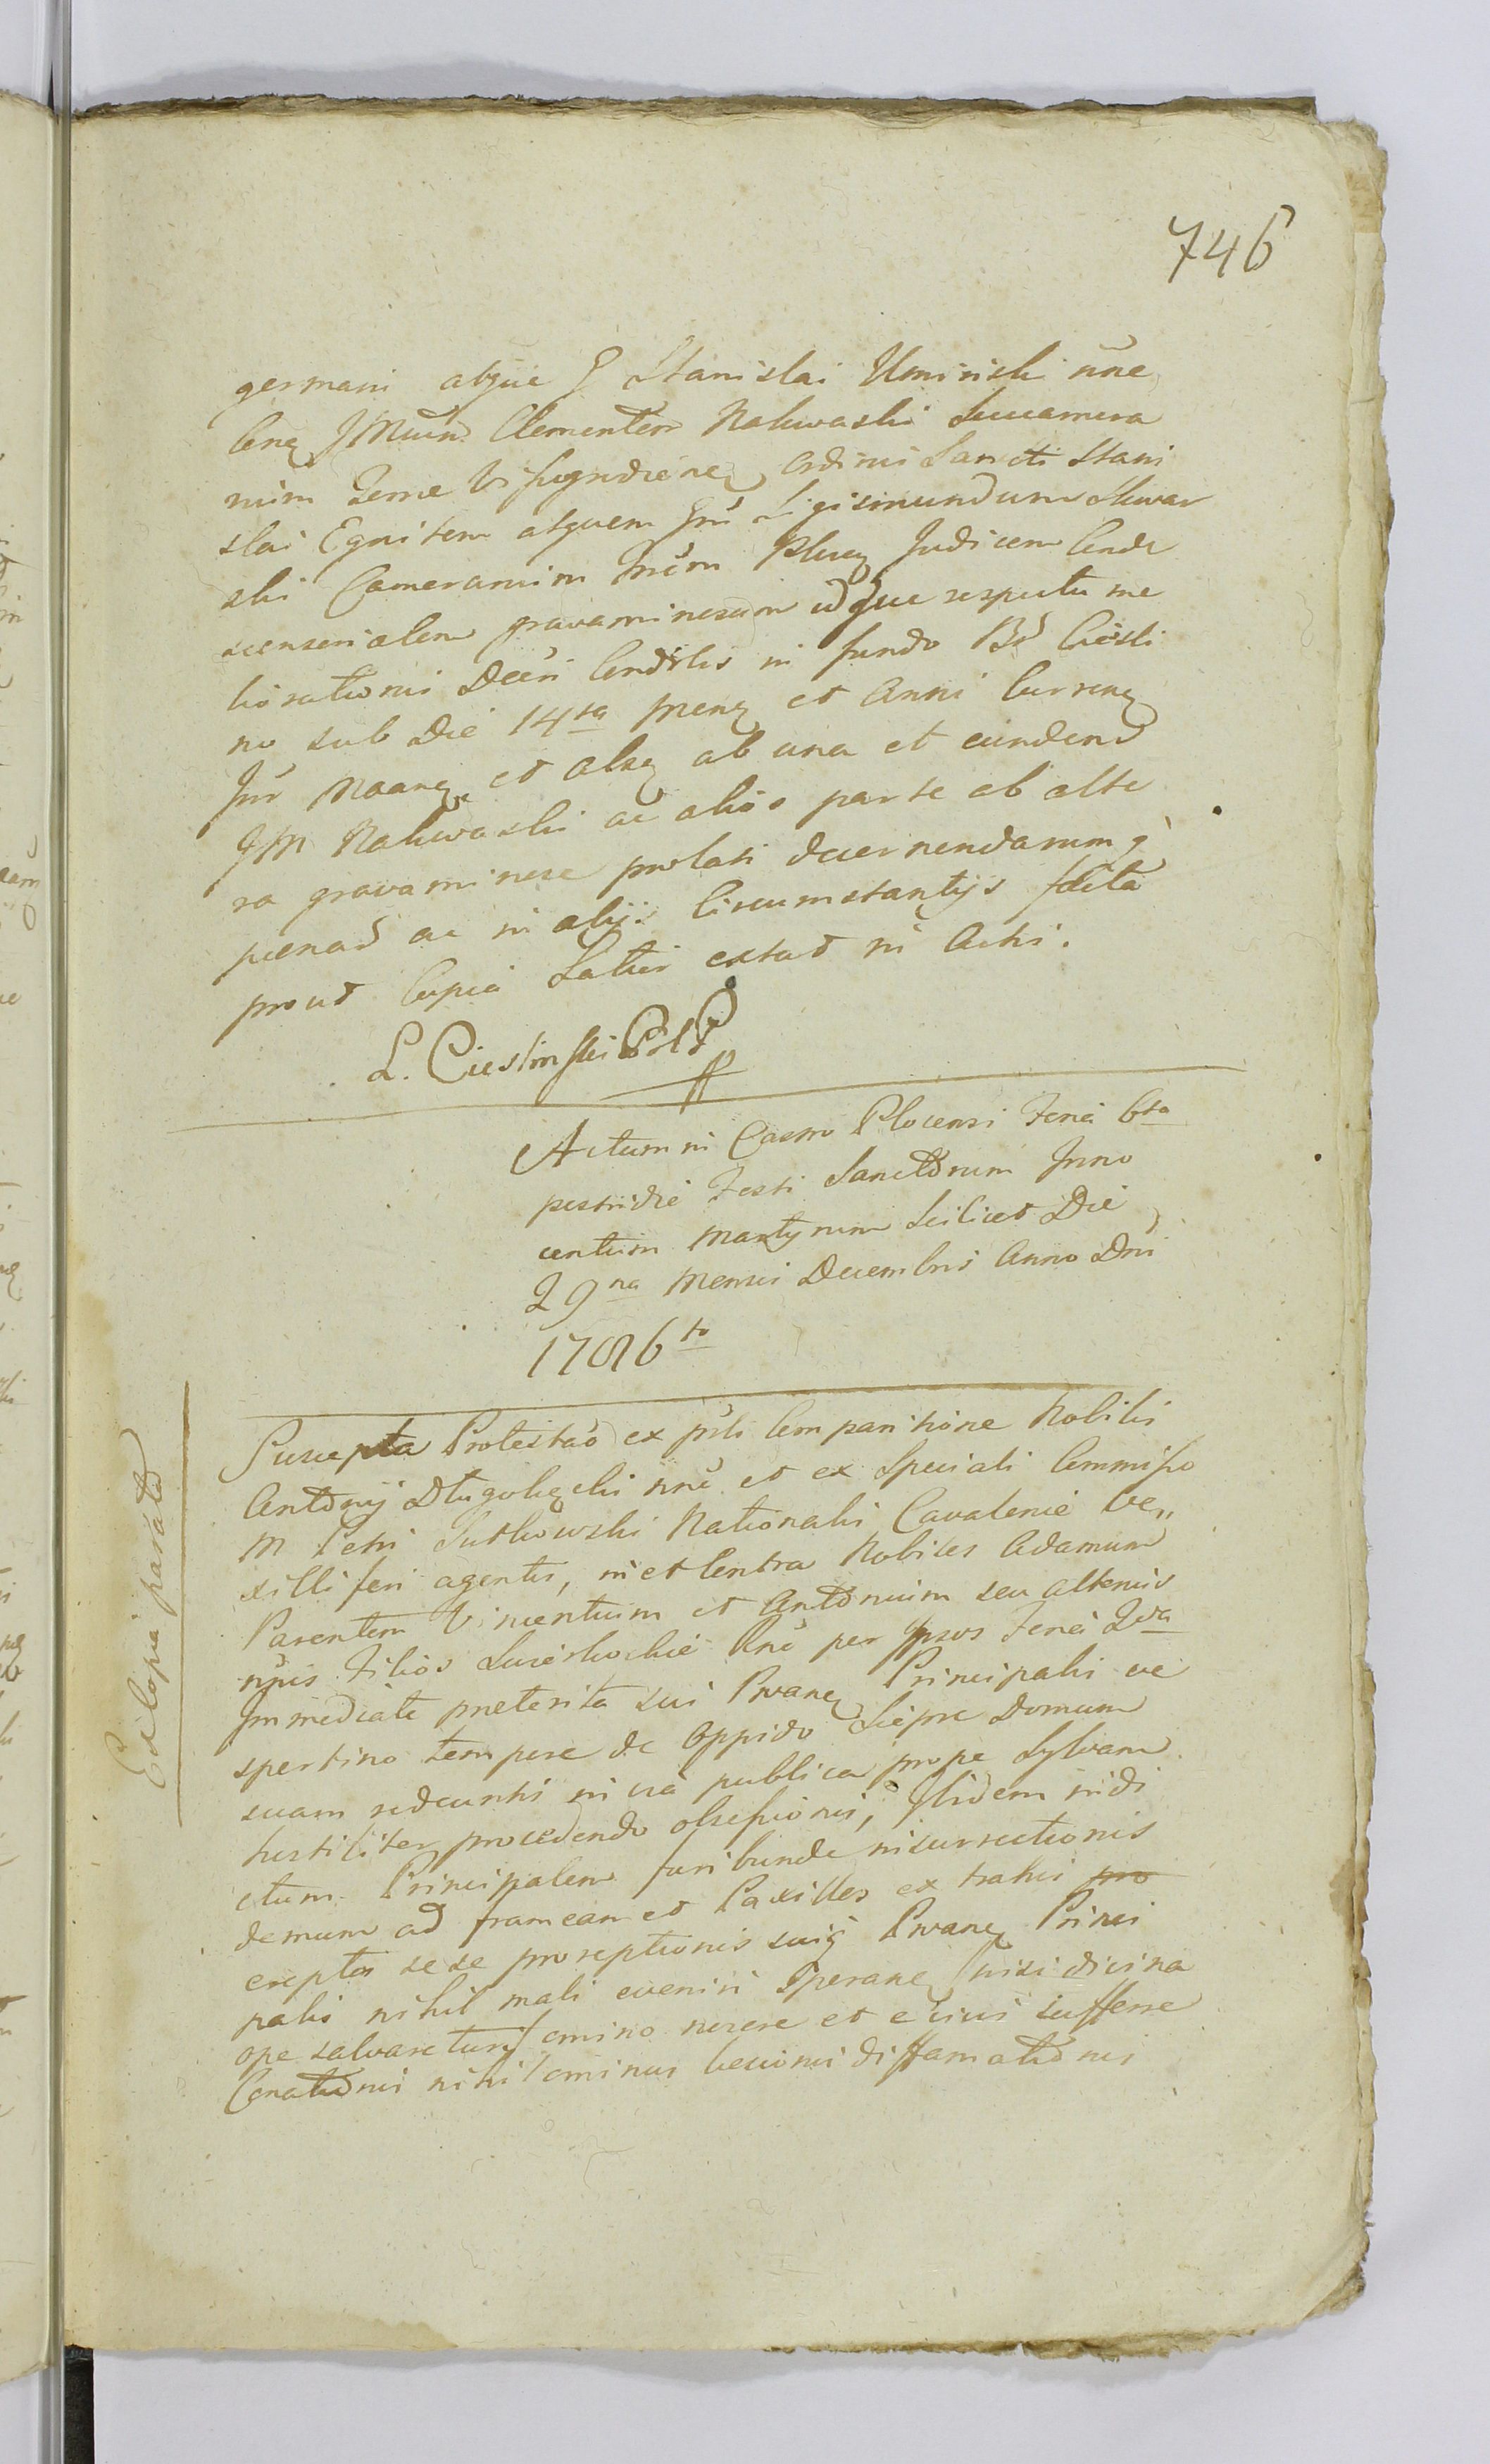 746
germani atque G Stanislai Uminski une
Cenę JMMum Clementem Nakwaski Succamera
rium Terrae Visnogrudienę ordinis Sancti Stani
slai Equitem atquem Grū Sigismundum Skwar
ski Camerarium Plucę Judicem Conde
scensorialem gravaminosum idque respectu me
liorationis Decri Cendtlis in fundo Bō Cieśli
no sub Die 14ta Menę et Anni Currenę
Jnr Maanę et alsę ab una et eundem
JM Nakwaski ac alios parte ab alte
ra gravaminose prolati decernendarum q̀
paenarū ac in alijs Circumstantijs facta
prout Copia Latius extat in Actis.
L. Ciesłinski
Actum in Castro Plocensi Feria 6ta
postridie Festi Sanctorum Inno
centum Martyrum Scilicet Die
29na Mensis Decembris Anno Dni
1786to
Ex Copia parata
Suscepta Protestaō ex prli Comparitione Nobilis
Antonij Długołęcki nnē et ex Speciali Commisso
M Petri Sutkowski Nationalis Cavaleriae Ve„
xilliferi agentis, in et Contra Nobiles Adamum
Parentem Vincentium et Antonium seu alterius
nōis Filios Surieskoskie Rnē per Ipsos Feria 2da
Immediate praeterita sui Prvanę Principalis ve
spertino tempore de Oppido Sieprc Domum
suam redeuntis in via publica prope Sylvam
hostiliter procedendo obsessionis, Ibidem in di
ctum Principalem furibunde insurrectionis
demum ad frameam et Paxilles ex trahis pro
erepta sese proreptionis suiq̀ Prvanę Princi
palis nihil mali eveniri Speranę /nisi divina
ope salvaretur/ omnino necere et e vivi sufferre
Conationis nihilominus lesionis diffamationis